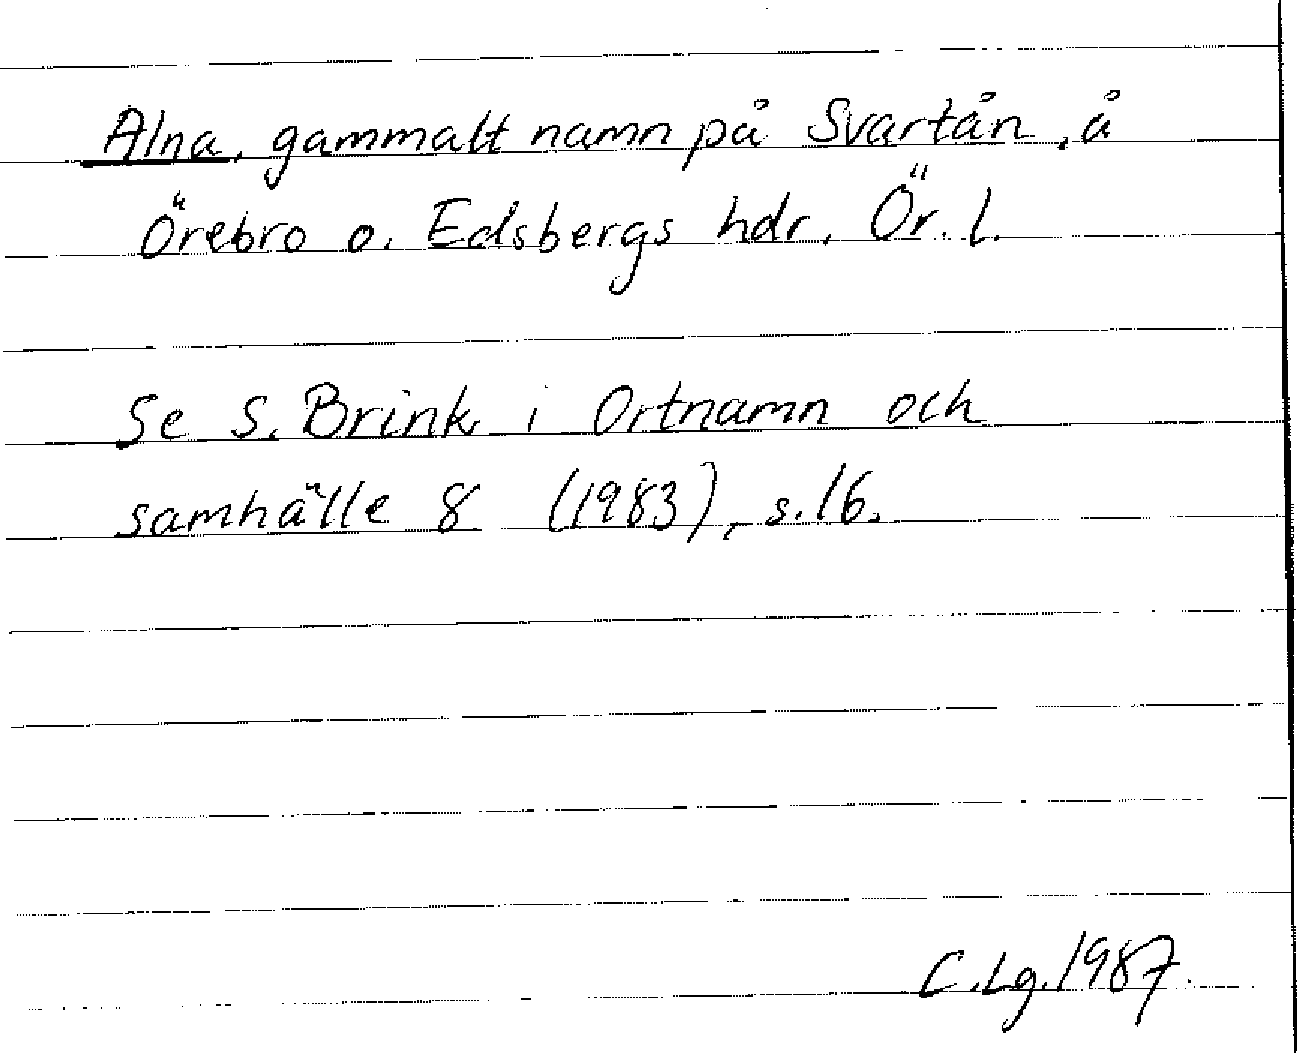 Alna, gammalt namn på Svartån, å
Örebro o. Edsbergs hdr, Ör. l.
Se S. Brink i Ortnamn och
samhälle 8 (1983), s. 16.
C. Lg. 1987.